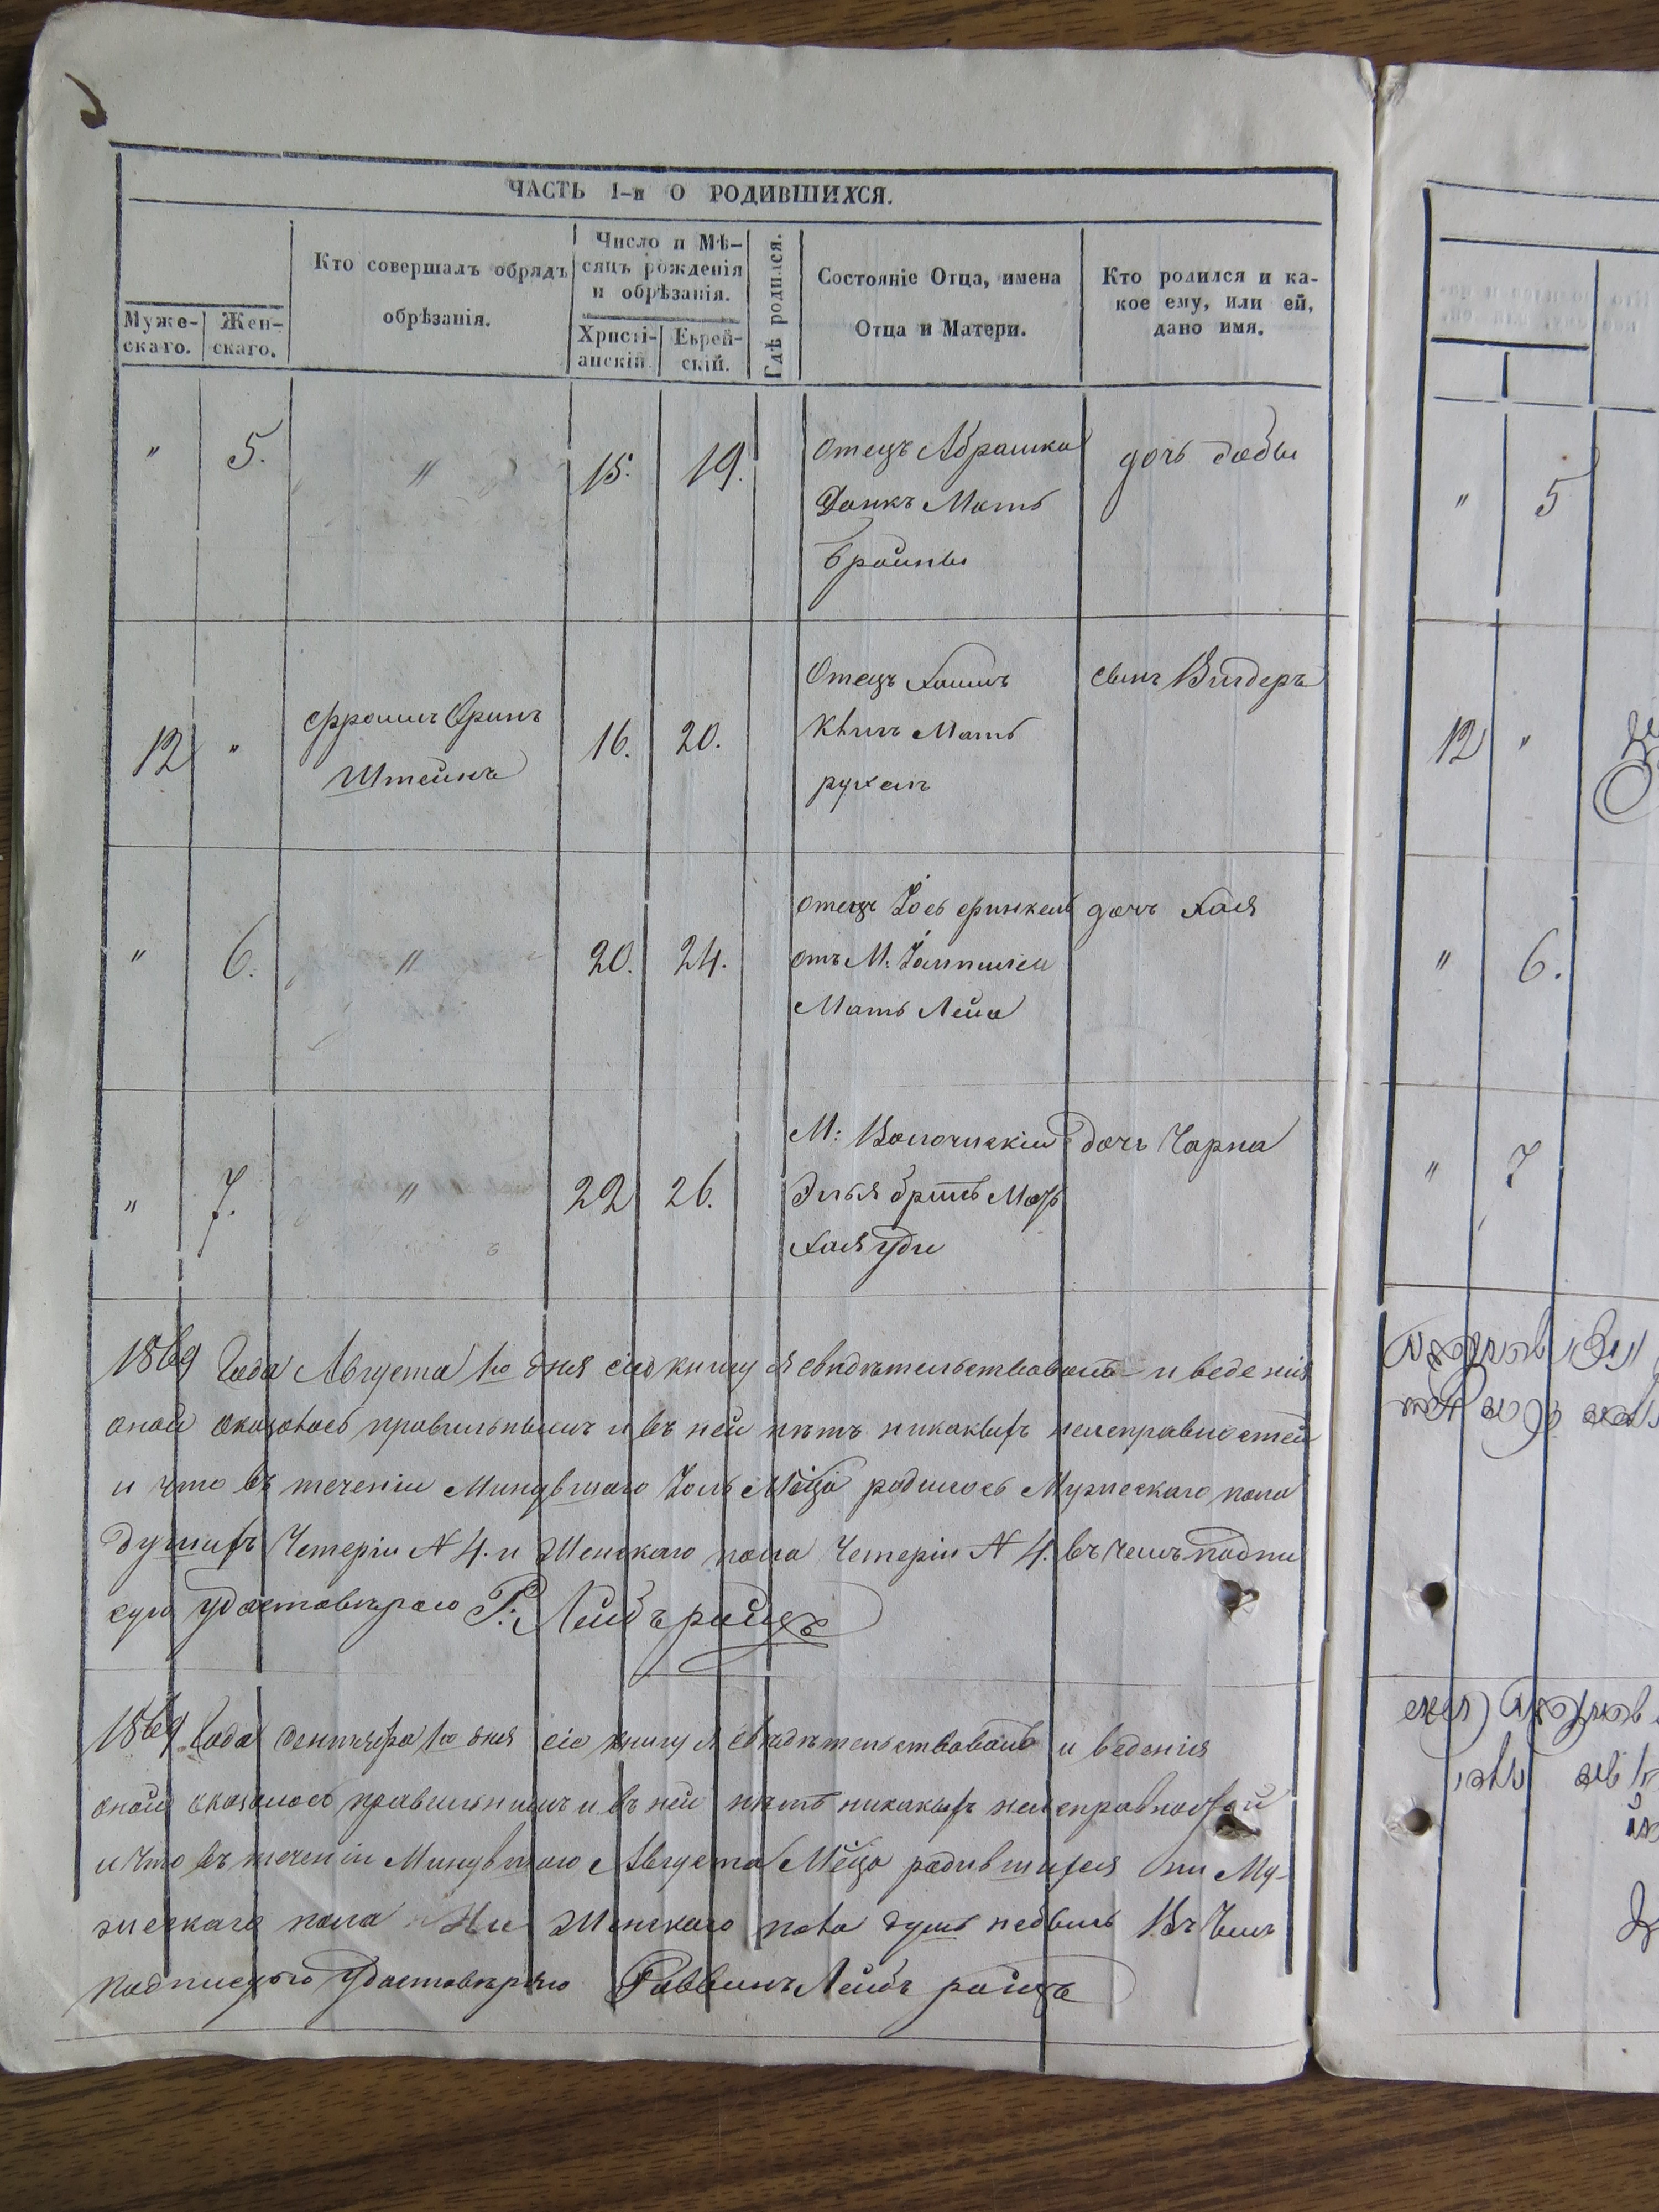 ЧАСТЬ 1-я О РОДИВШИХСЯ.
Муже-
скаго.
Жен-
скаго.
Кто совершалъ обрядъ
обрѣзанія.
Число и Мѣ-
сяцъ рожденія
и обрѣзанія.
Христі-
анскій
Еврей-
скій.
Гдѣ родился.
Состояніе Отца, имена
Отца и Матери.
Кто родился и ка-
кое ему, или ей,
дано имя.
" 5. " 15. 19.
Отецъ Абрашка
Данкъ Мать
Браины
дочь добы
12 "
Штейнъ
16. 20.
Отецъ Хаимъ
Мать
рухель
сынъ Вигдеръ
" 6. " 20. 24.
отецъ Іось финкель
отъ М:
Мать Лейа
дочь Хая
" 7. " 22 26.
М: Волочискій
Элья Мать
Хая
дочь Чарна
1869 Года Августа 1го дня сію книгу я свидѣтельствовалъ и веденія
оной оказалось правильнымъ и въ ней нѣтъ никакихъ неисправностей
и что въ теченіи Минувшаго Іоль Мѣца родилось Мужескаго пола
душъ Четеріи N 4. и Женскаго пола Четеріи N 4. въ чемъ подпи
сую удостовѣряю Р: Лейбъ райхъ
1869 Года Сентября 1го дня сію книгу я свидѣтельствовалъ и веденія
оной оказалось правильнимъ и въ ней нѣтъ никакихъ неисправностей
и что въ теченіи Минувшаго Августа Мѣца родившихся ни Му-
жескаго пола Ни Женскаго пола душъ небыль Въ Чемъ
подписую Удостовѣряю Раввинъ Лейбъ райхъ
" 5
12 "
" 6.
" 7